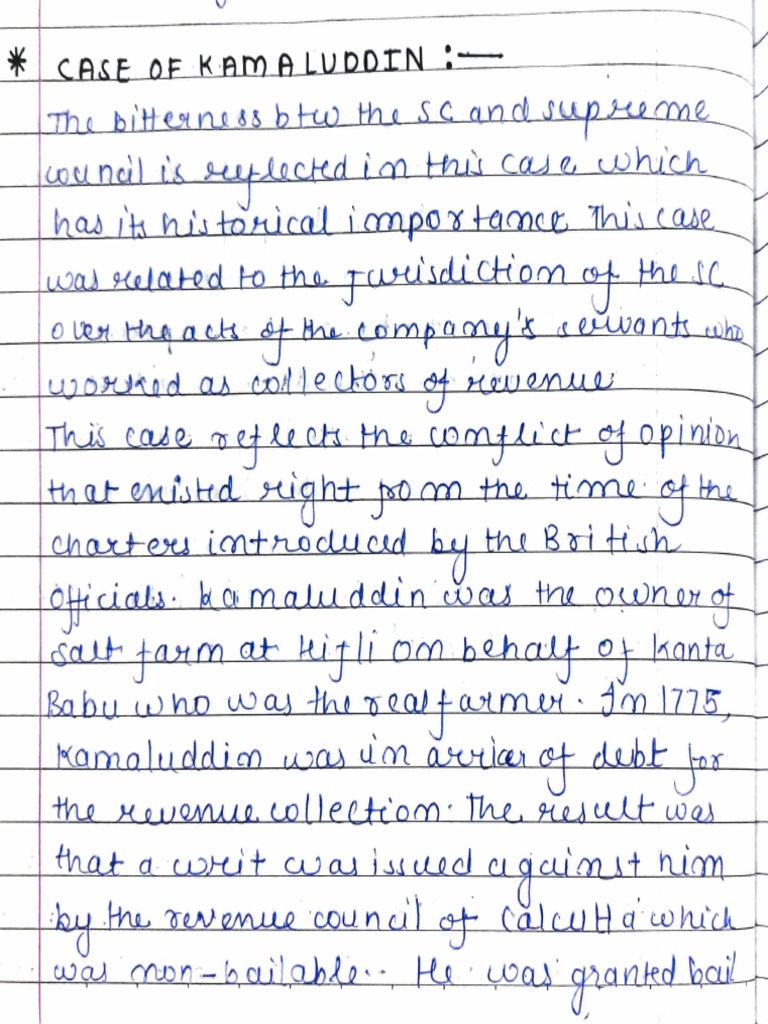 * CASE OF KAMALUDDIN :—
The bitterness btw the SC and supreme
council is reflected in this case which
has its historical importance. This case
was related to the jurisdiction of the SC
over the acts of the company's servants who
worked as collectors of revenue.
This case reflects the conflict of opinion
that existed right from the time of the
charters introduced by the British
officials. Kamaluddin was the owner of
salt farm at Hijli on behalf of Kanta
Babu who was the real farmer. In 1775,
Kamaluddin was in arriear of debt for
the revenue collection. The result was
that a writ was issued against him
by the revenue council of Calcutta which
was non-bailable.. He was granted bail